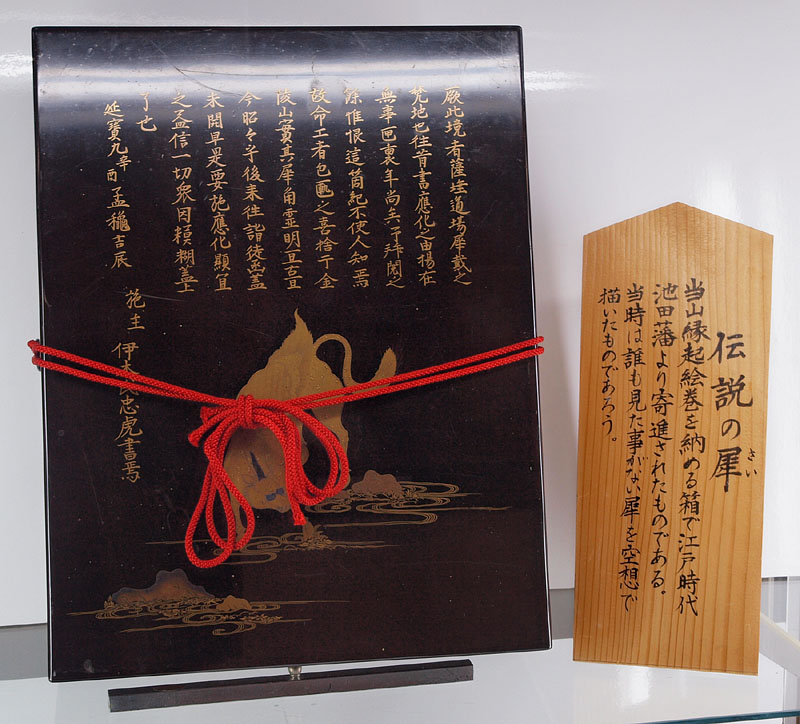 厥此境者薩埵道場犀戴之
梵地也往昔書應化之由揚在
無事匣裏年尚矣予拜閲之
餘惟恨這箇紀不使人知焉
故命工者包匭之喜捨千金
陵山實其犀角靈明亘古亘
今昭々乎後来往詣徒函蓋
未開早是要施應化顯宜
之益信一切衆因模糊蓋上
了也
延寶九辛酉孟龝吉辰
施主 伊木 忠虎書焉
伝説の犀
さい
当山縁起絵巻を納める箱で江戸時代
池田藩より寄進されたものである。
当時は誰も見た事がない犀を空想で
描いたものであろう。